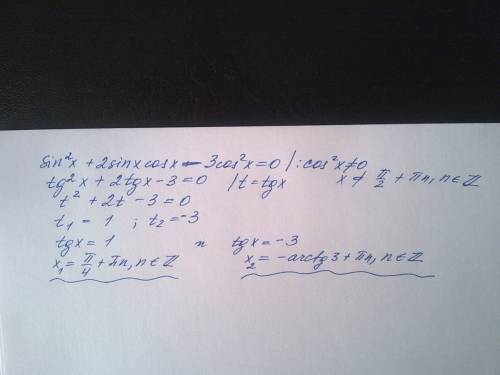 sin²x + 2sinx cosx - 3cos²x = 0 / : cos²x ≠ 0
tg²x + 2tgx - 3 = 0 / t = tgx x ≠ π/2 + πn, n ∈ ℤ
t² + 2t - 3 = 0
t₁ = 1 ; t₂ = -3
tgx = 1 и tgx = -3
x₁ = π/4 + πn, n ∈ ℤ x₂ = -arctg3 + πn, n ∈ ℤ